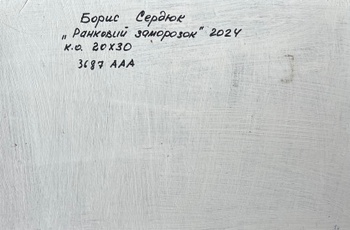 Борис Сердюк
„Ранковий заморозок" 2024
к.о. 20х30
3687 ААА